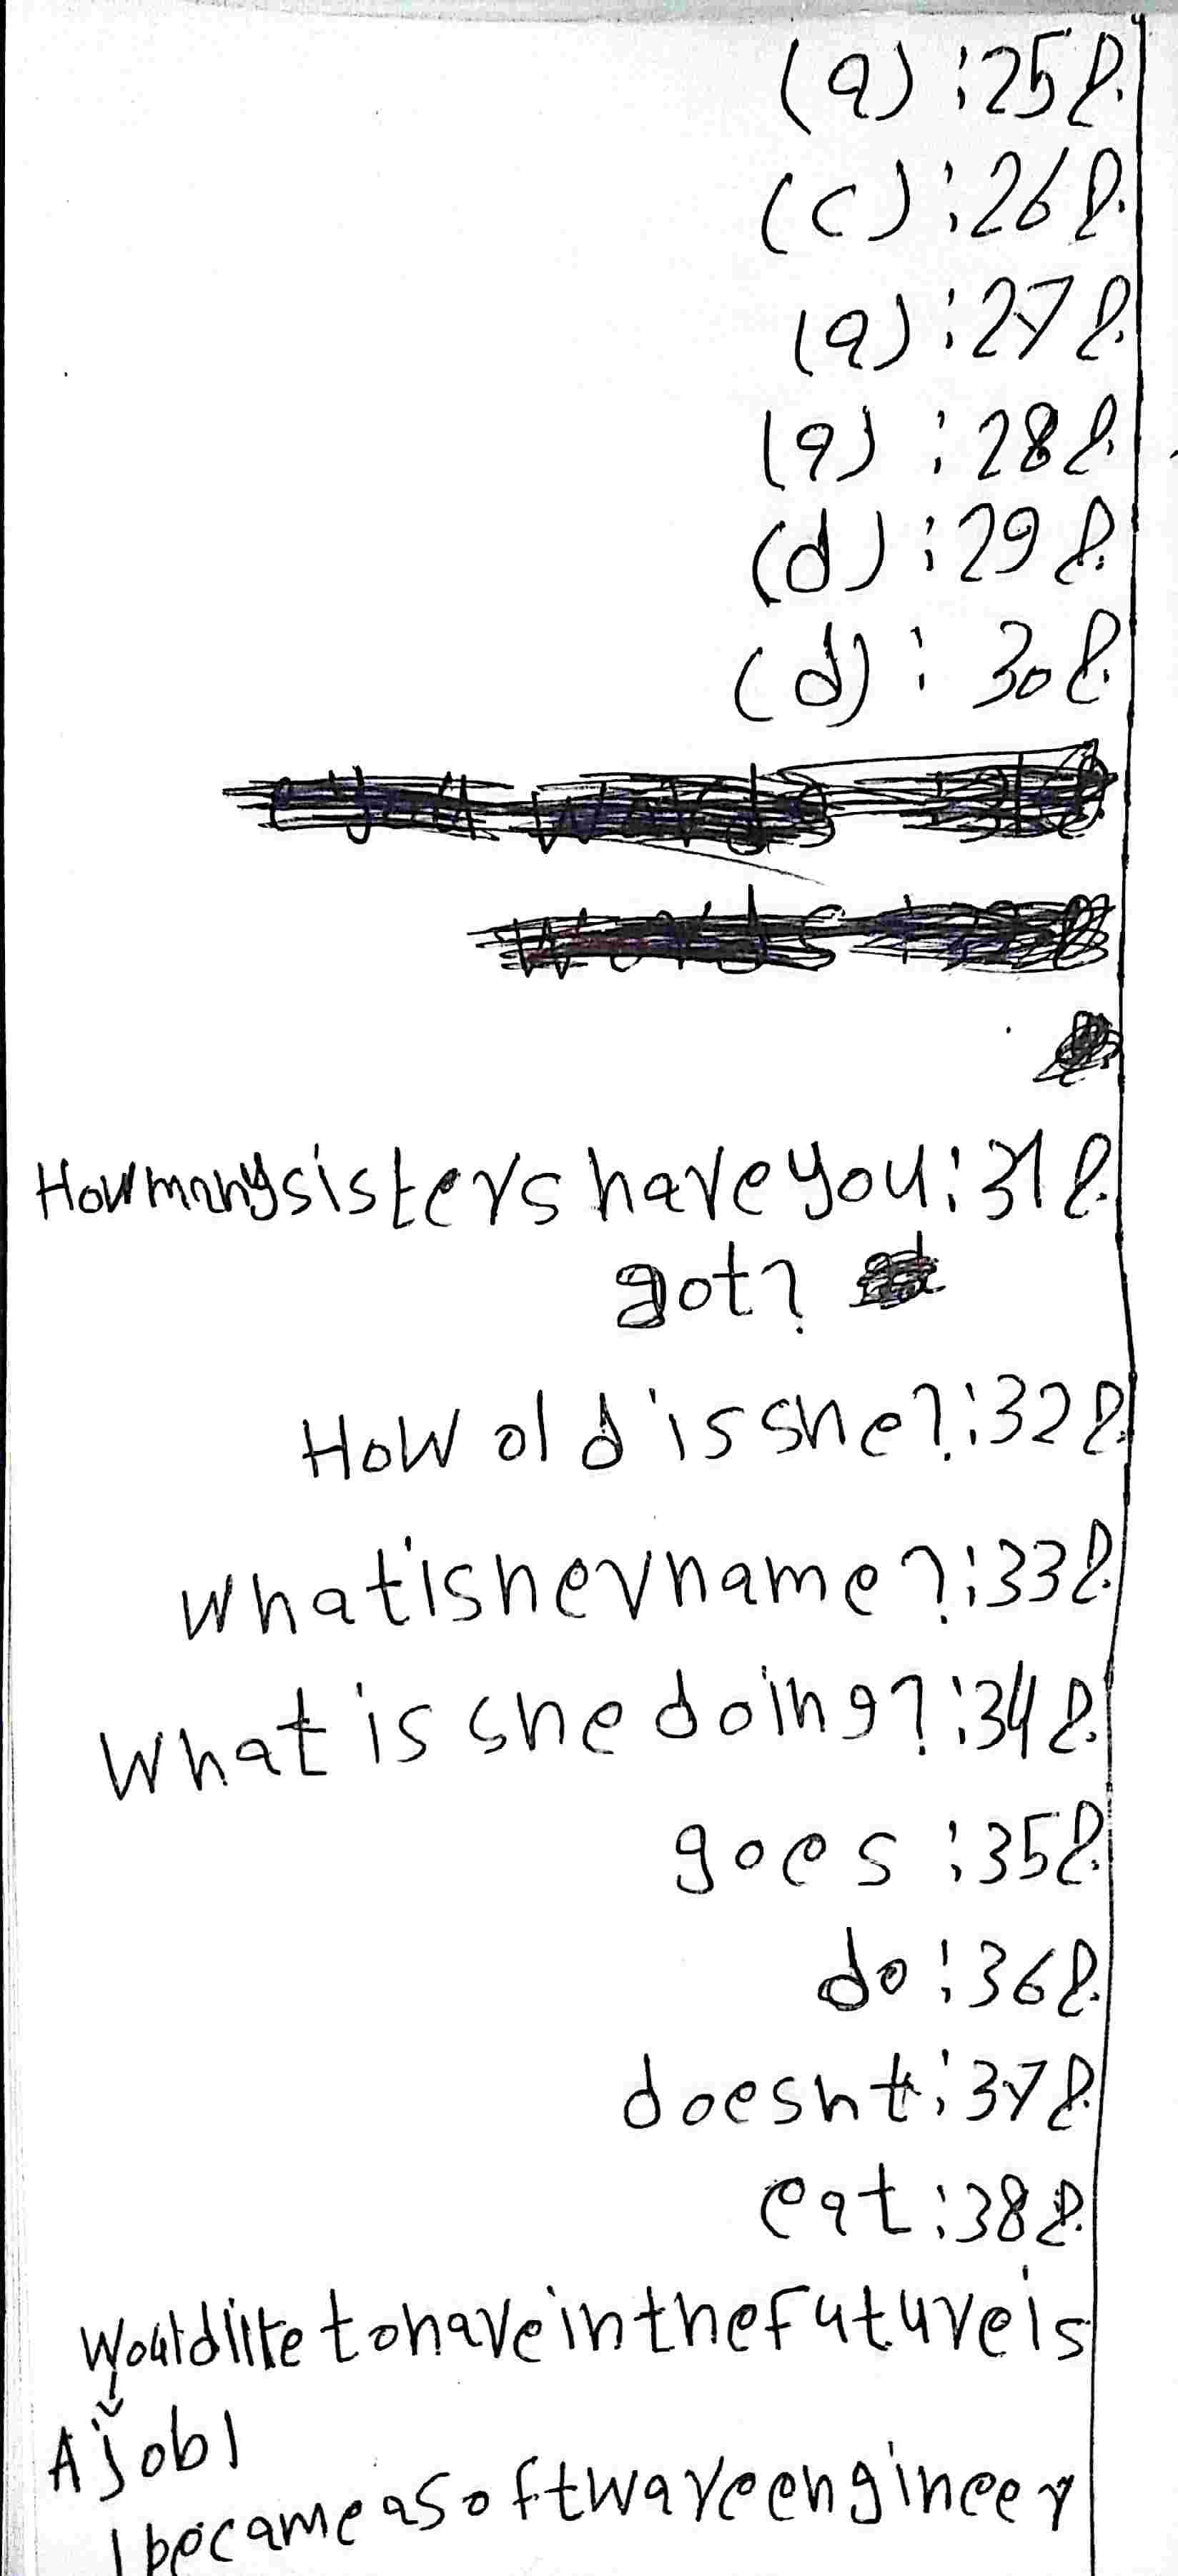 (a) : 25 ج.
(c) : 26 ج.
(a) : 27 ج.
(a) : 28 ج.
(d) : 29 ج.
(d) : 30 ج.
How many sisters have you : 31 ج.
got?
How old is she? : 32 ج.
what is her name? : 33 ج.
What is she doing? : 34 ج.
goes : 35 ج.
do : 36 ج.
doesnt : 37 ج.
eat : 38 ج.
Would like to have in the future is
A job I
I became a software engineer